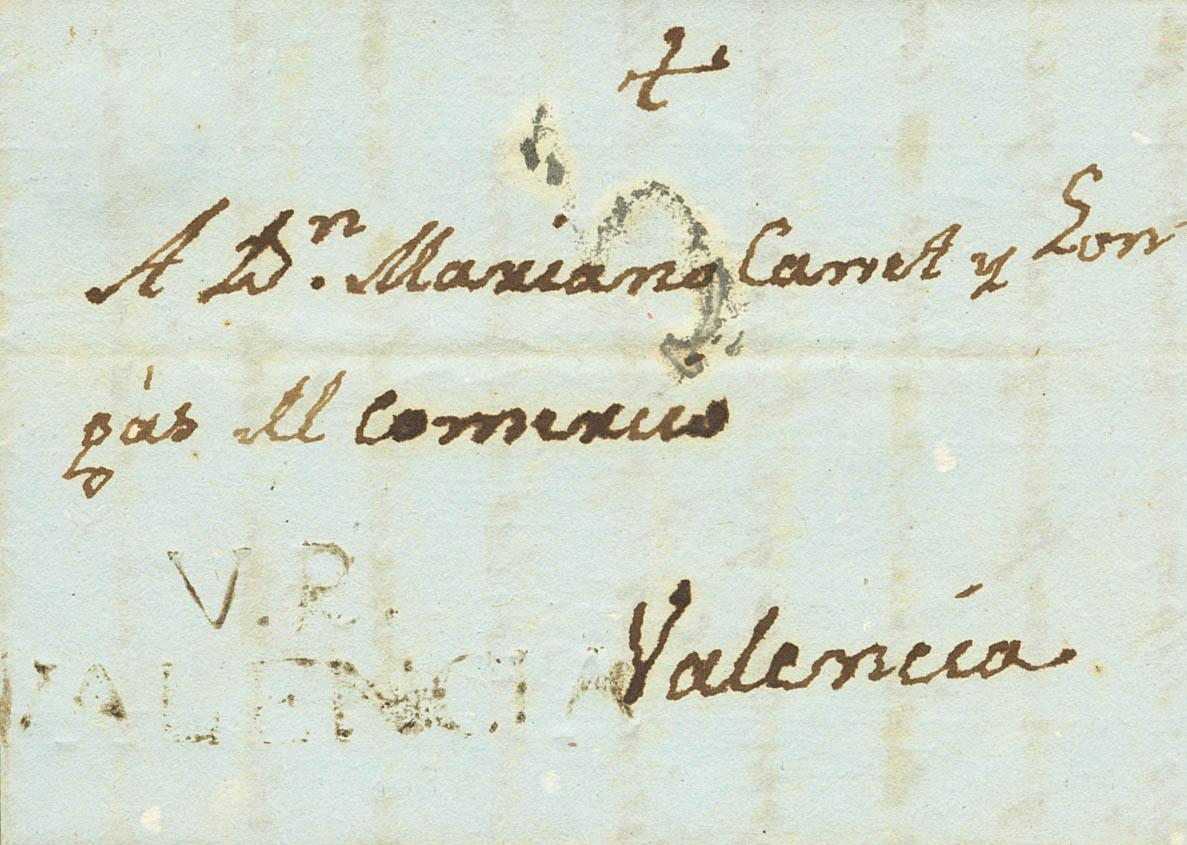 A Dn. Mariano Canet y Com
pás del Comercio
V.R.
VALENCIA
Valencia.